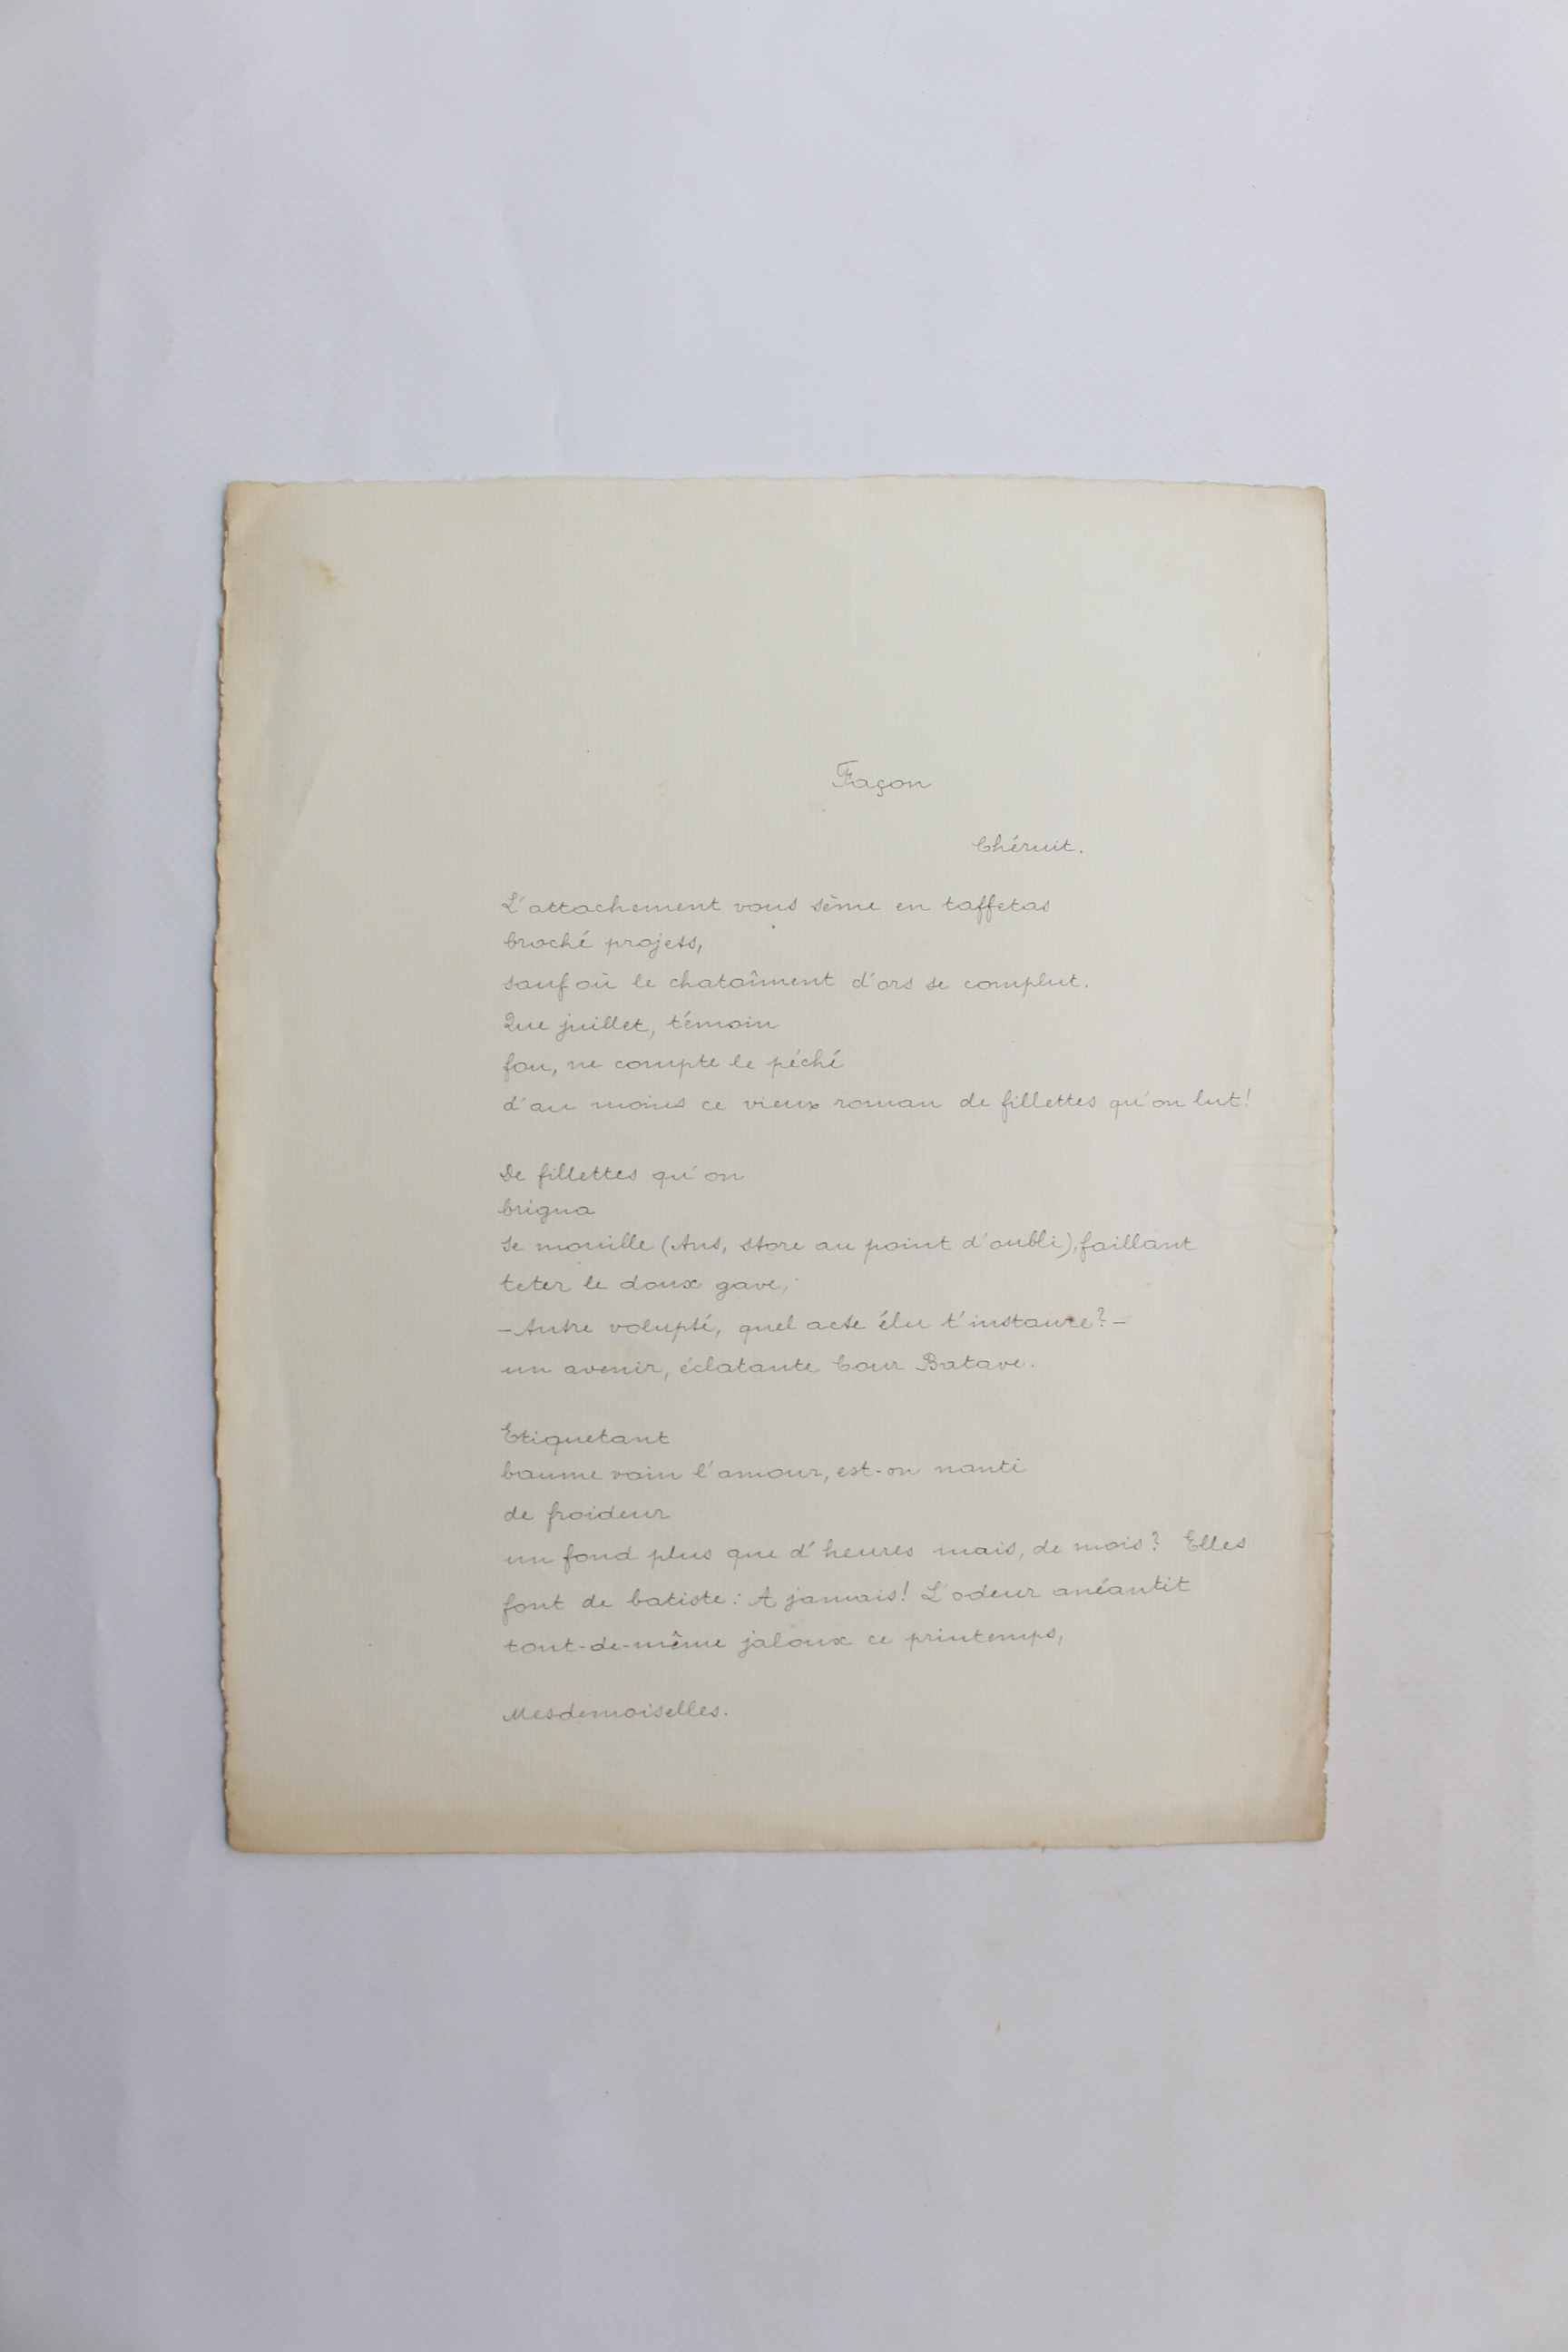 Façon
Chéruit.
L'attachement vous sème en taffetas
broché projets,
sauf où le chataîment d'ors se complut.
Que juillet, témoin
fou, ne compte le péché
d'au moins ce vieux roman de fillettes qu'on lut!
De fillettes qu'on
brigua
se mouille (Ans, store au point d'oubli), faillant
teter le doux gave,
– Autre volupté, quel acte élu t'instaure? –
un avenir, éclatante Cour Batave.
Etiquetant
baume vain l'amour, est-on nanti
de froideur
un fond plus que d'heures mais, de mois? Elles
font de batiste: A jamais! L'odeur anéantit
tout-de-même jaloux ce printemps,
Mesdemoiselles.